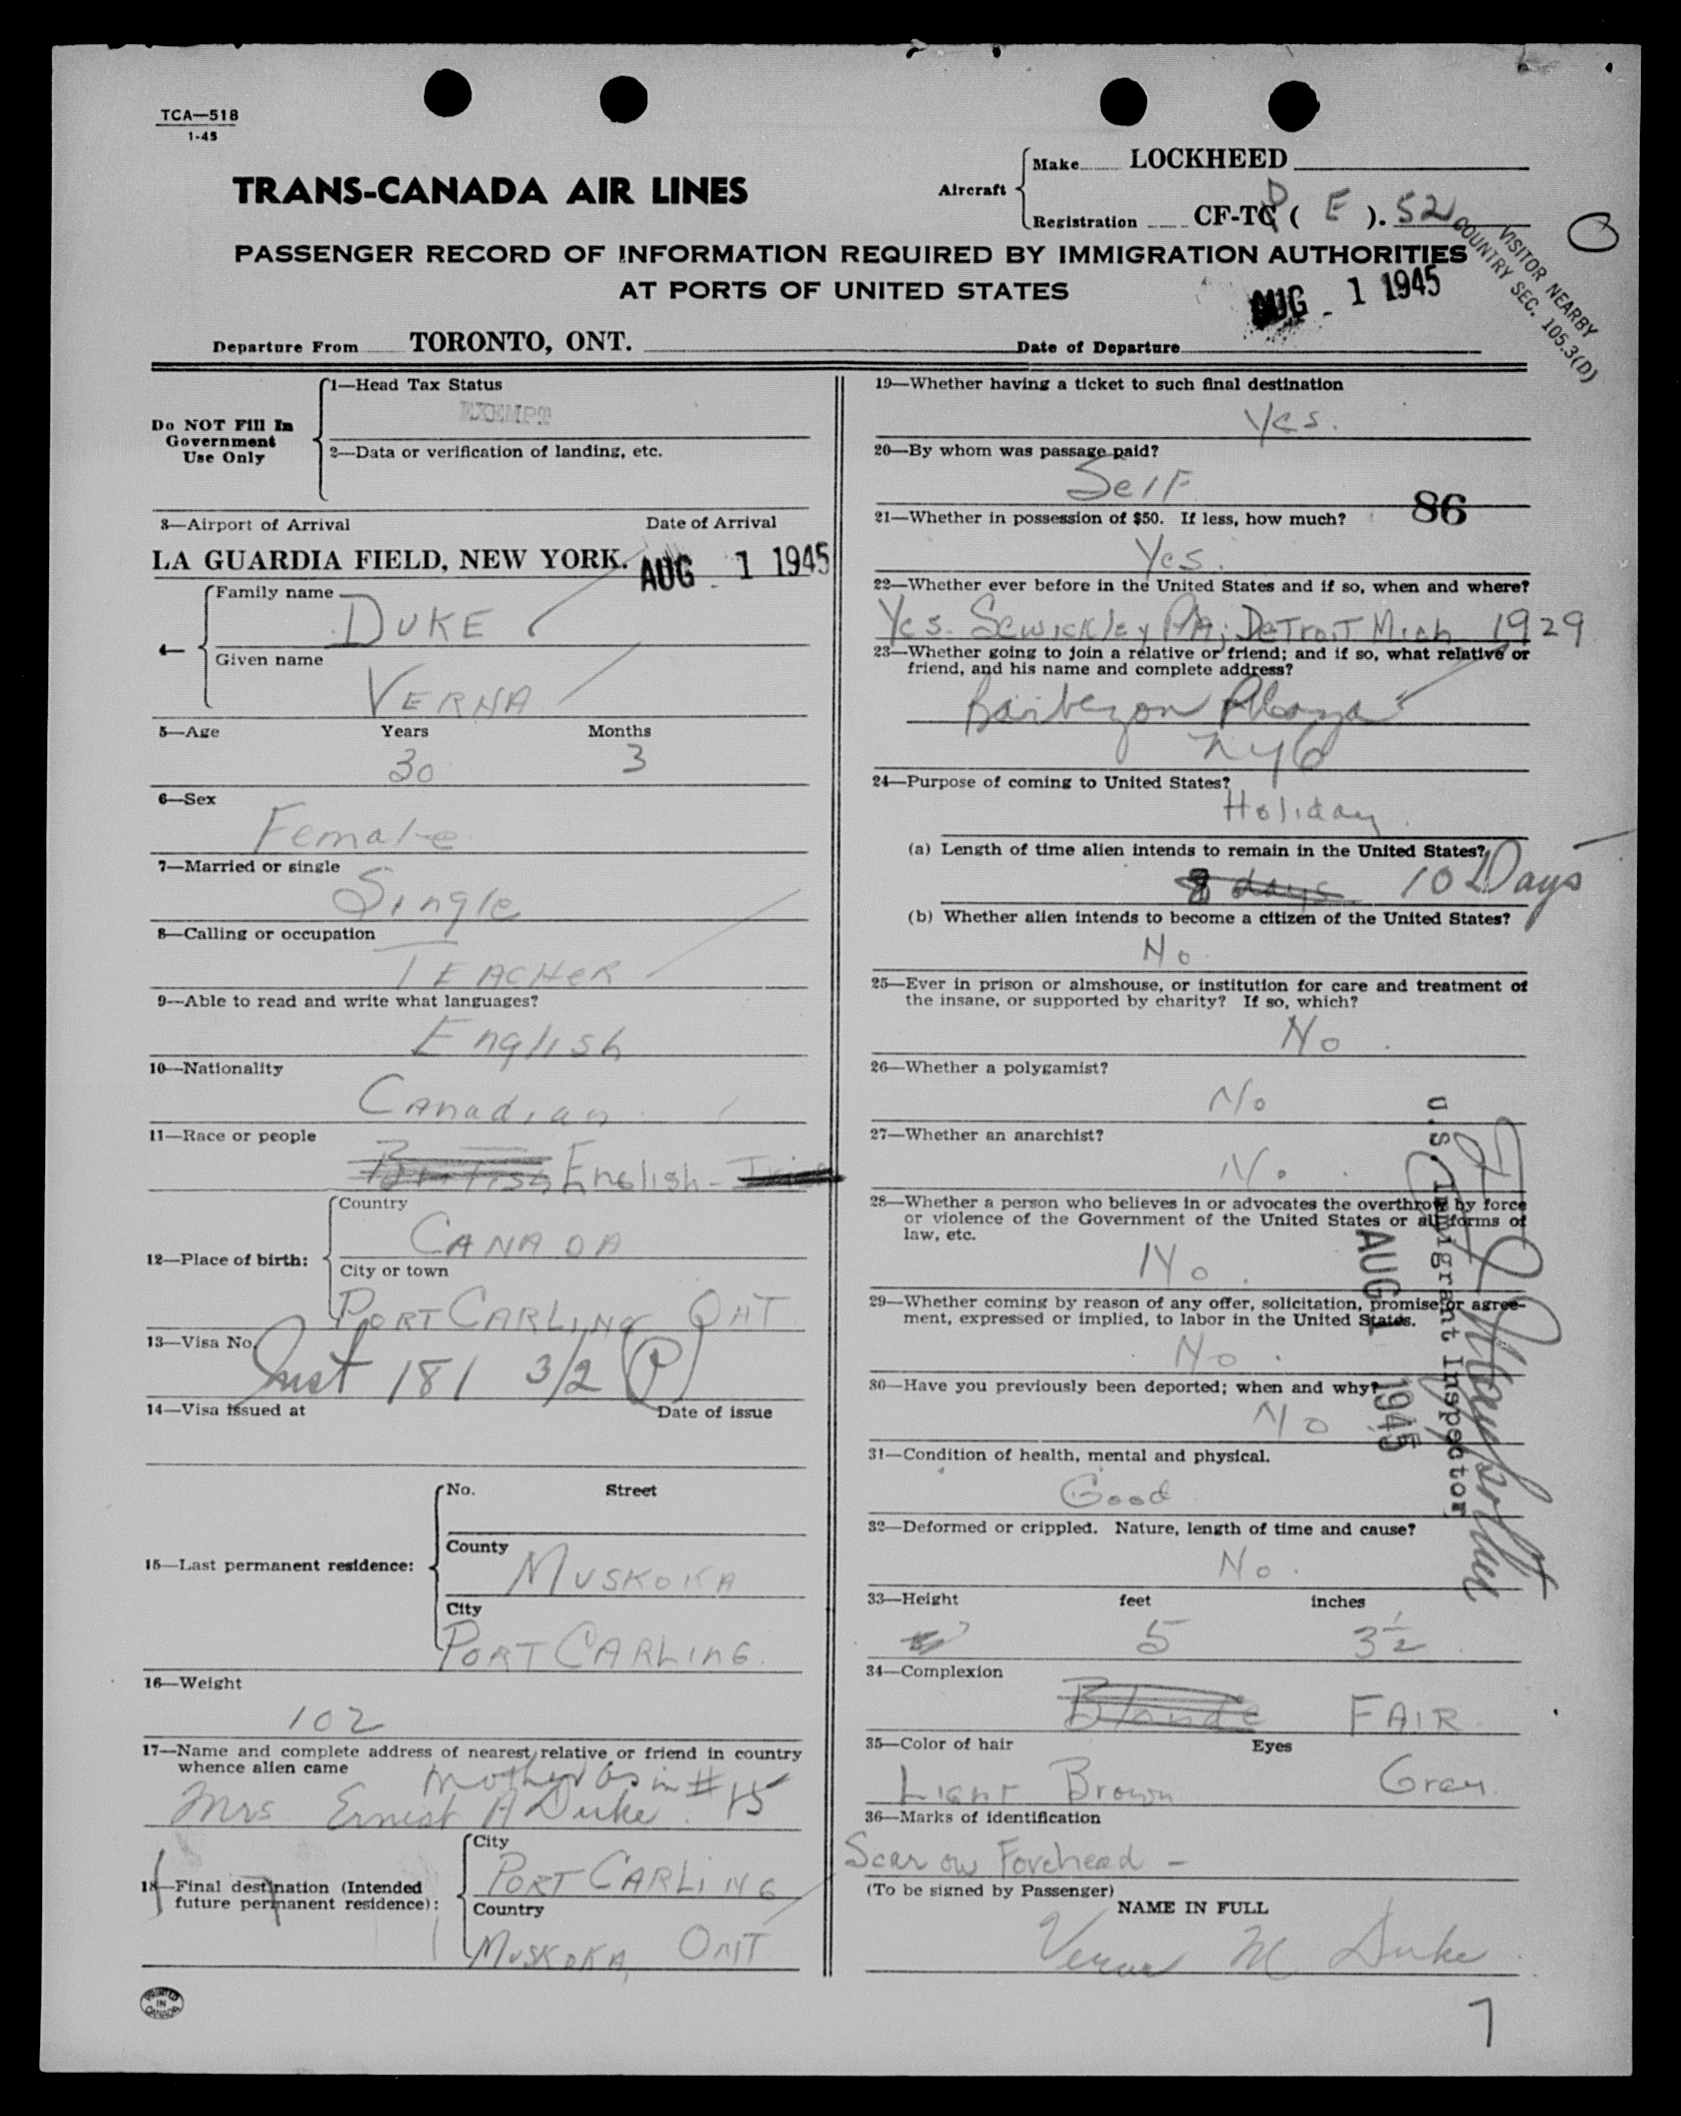 TCA—518
1-45
TRANS-CANADA AIR LINES
Aircraft
Make LOCKHEED
Registration CF-TC ( E ). 52
PASSENGER RECORD OF INFORMATION REQUIRED BY IMMIGRATION AUTHORITIES
AT PORTS OF UNITED STATES
VISITOR NEARBY
COUNTRY SEC. 105.3(D)
AUG - 1 1945
Departure From TORONTO, ONT. Date of Departure
Do NOT Fill In
Government
Use Only
1—Head Tax Status
EXEMPT
2—Data or verification of landing, etc.
3—Airport of Arrival Date of Arrival
LA GUARDIA FIELD, NEW YORK. AUG - 1 1945
4—
Family name
DUKE
Given name
VERNA
5—Age Years Months
30 3
6—Sex
Female
7—Married or single
Single
8—Calling or occupation
TEACHER
9—Able to read and write what languages?
English
10—Nationality
Canadian
11—Race or people
British English - Irish
12—Place of birth:
Country
CANADA
City or town
PORT CARLING ONT
13—Visa No.
181 3/2 (P)
14—Visa issued at Date of issue
15—Last permanent residence:
No. Street
County
MUSKOKA
City
PORT CARLING.
16—Weight
102
17—Name and complete address of nearest relative or friend in country
whence alien came
mother as in # 15
Mrs Ernest A Duke.
18—Final destination (Intended
future permanent residence):
City
PORT CARLING
Country
MUSKOKA, ONT
PRINTED
IN
CANADA
19—Whether having a ticket to such final destination
Yes.
20—By whom was passage paid?
Self
21—Whether in possession of $50. If less, how much? 86
Yes.
22—Whether ever before in the United States and if so, when and where?
Yes. Sewickley PA; DETROIT Mich 1929
23—Whether going to join a relative or friend; and if so, what relative or
friend, and his name and complete address?
Barbizon Plaza
NYC
24—Purpose of coming to United States?
Holiday.
(a) Length of time alien intends to remain in the United States?
8 days 10 Days
(b) Whether alien intends to become a citizen of the United States?
No.
25—Ever in prison or almshouse, or institution for care and treatment of
the insane, or supported by charity? If so, which?
No.
26—Whether a polygamist?
No
27—Whether an anarchist?
No.
28—Whether a person who believes in or advocates the overthrow by force
or violence of the Government of the United States or all forms of
law, etc.
No.
29—Whether coming by reason of any offer, solicitation, promise or agree-
ment, expressed or implied, to labor in the United States.
No.
30—Have you previously been deported; when and why?
No
31—Condition of health, mental and physical.
Good
32—Deformed or crippled. Nature, length of time and cause?
No.
33—Height feet inches
5 3½
34—Complexion
Blonde FAIR.
35—Color of hair Eyes
LIGHT Brown Grey.
36—Marks of identification
Scar on Forehead -
(To be signed by Passenger)
NAME IN FULL
Verna M Duke
U.S. Immigrant Inspector
AUG 1 1945
7